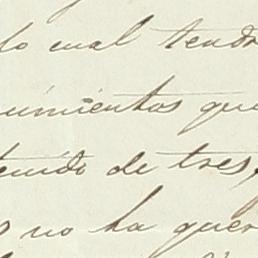 lo cual tendr
uimientos que
tenido de tres,
s no ha quer